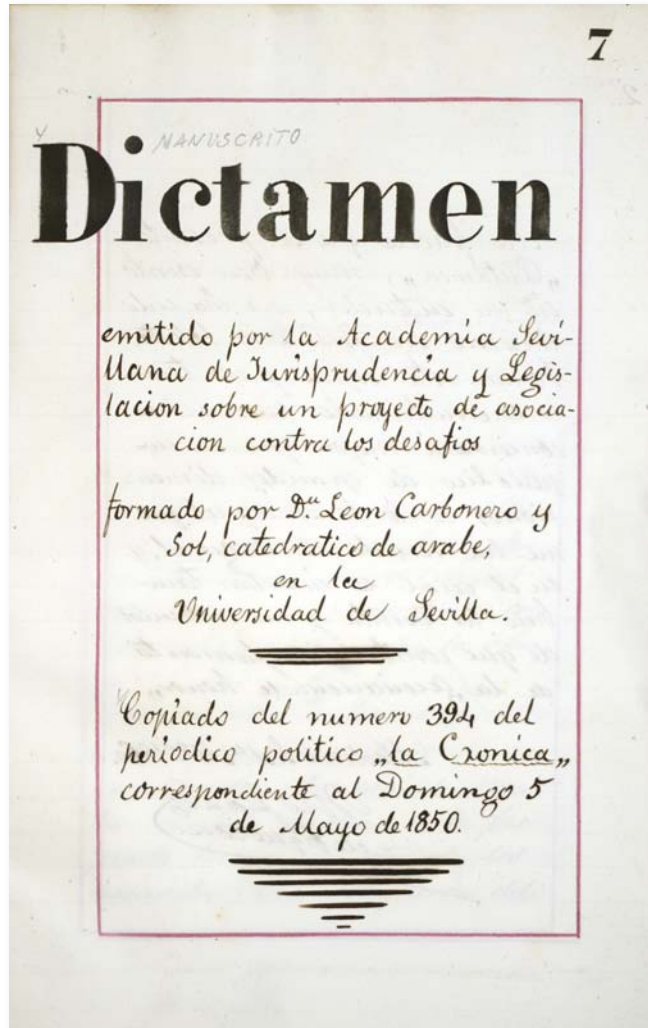 7
MANUSCRITO
Dictamen
emitido por la Academia Sevi-
llana de Jurisprudencia y Legis-
lacion sobre un proyecto de asocia-
cion contra los desafios
formado por D.n Leon Carbonero y
Sol, catedratico de arabe,
en la
Universidad de Sevilla.
Copiado del numero 394 del
periodico politico „la Cronica„
correspondiente al Domingo 5
de Mayo de 1850.